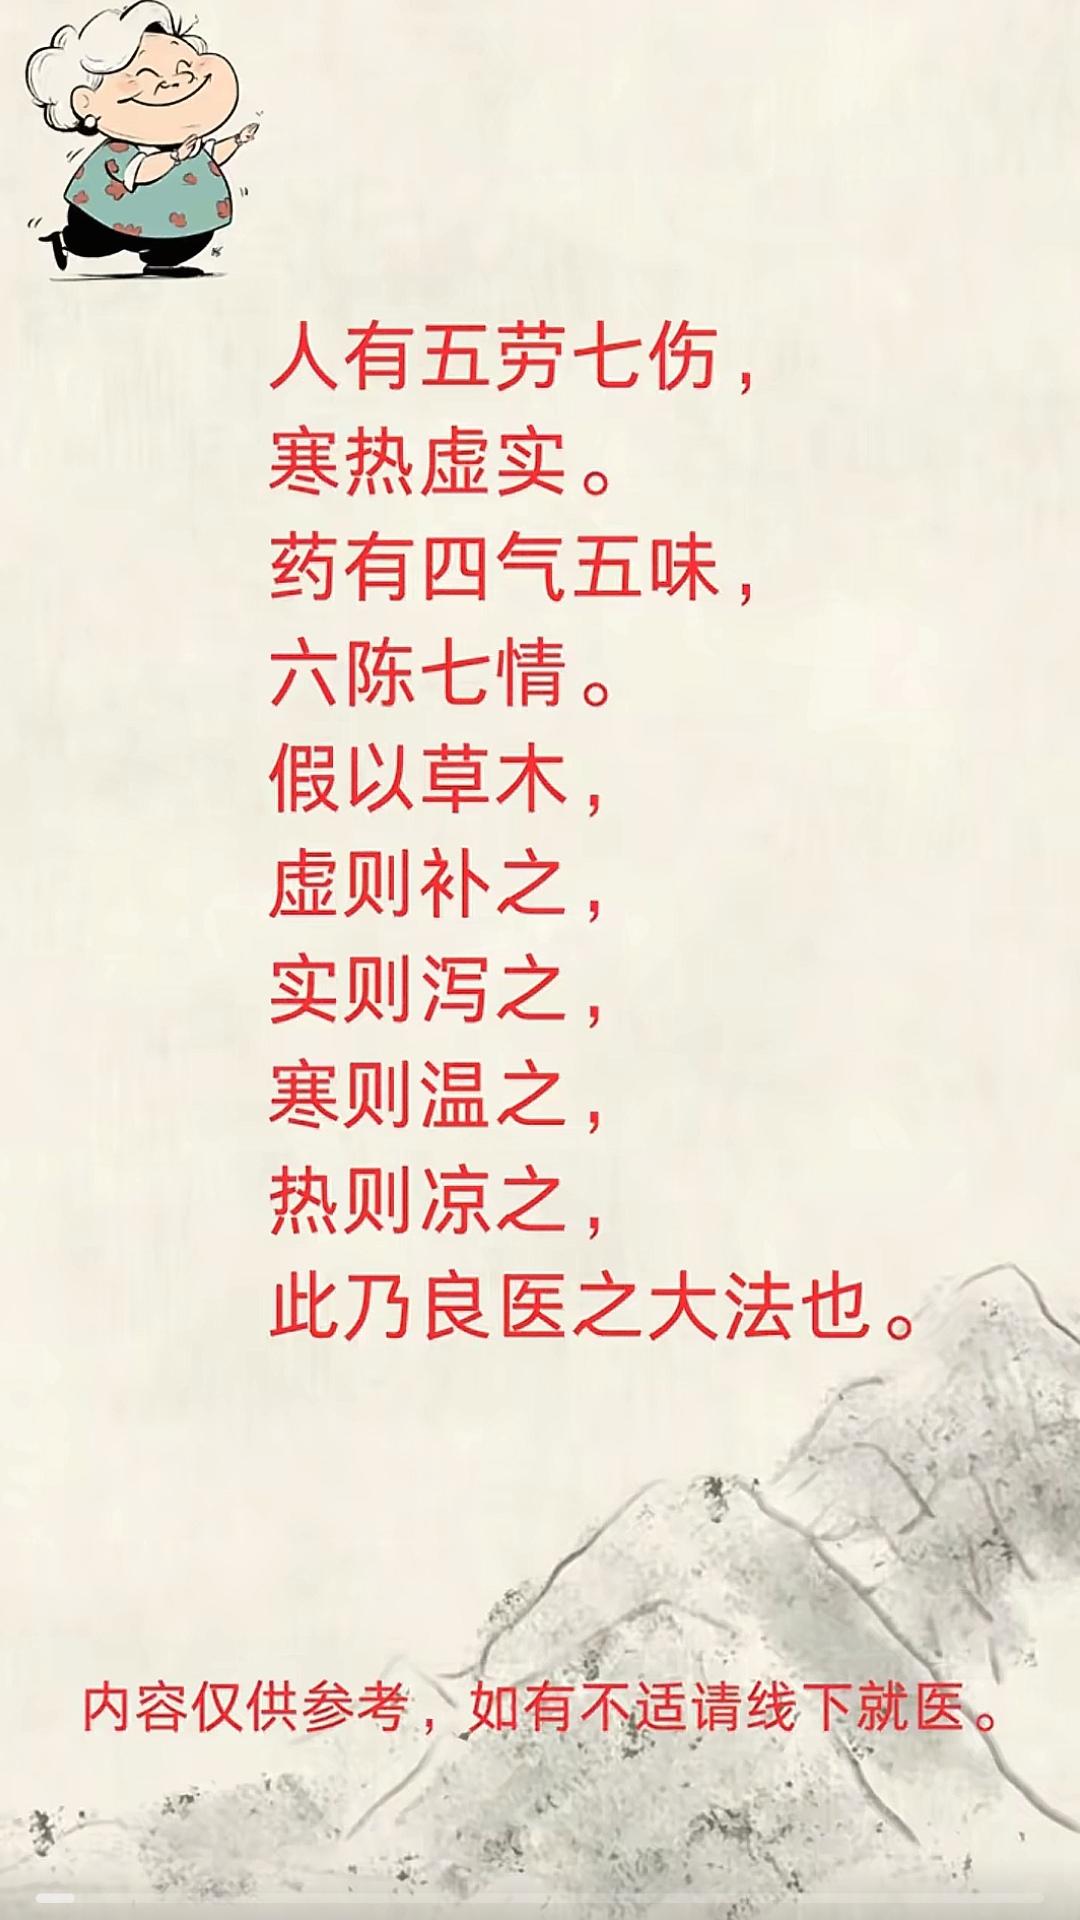 人有五劳七伤，
寒热虚实。
药有四气五味，
六陈七情。
假以草木，
虚则补之，
实则泻之，
寒则温之，
热则凉之，
此乃良医之大法也。
内容仅供参考，如有不适请线下就医。